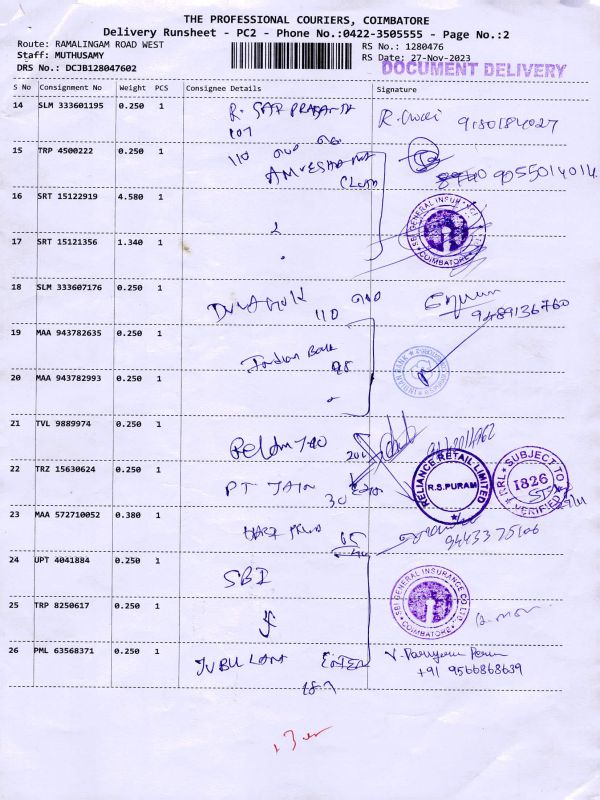 THE PROFESSIONAL COURIERS, COIMBATORE
Delivery Runsheet - PC2 - Phone No.:0422-3505555 - Page No.:2
Route: RAMALINGAM ROAD WEST
RS No.: 1280476
Staff: MUTHUSAMY
RS Date: 27-Nov-2023
DRS No.: DCJB128047602
DOCUMENT DELIVERY
S No Consignment No Weight PCS Consignee Details Signature
14 SLM 333601195 0.250 1
107
15 TRP 4500222 0.250 1
110
9055014014
16 SRT 15122919 4.580 1
SBI GENERAL INSUR
COIMBATORE
17 SRT 15121356 1.340 1
18 SLM 333607176 0.250 1
110
9489136760
19 MAA 943782635 0.250 1
Indian Bank
98
INDIAN BANK
20 MAA 943782993 0.250 1
21 TVL 9889974 0.250 1
22 TRZ 15630624 0.250 1
PT JAIN
30
RELIANCE RETAIL LIMITED
R.S.PURAM
RRL SUBJECT TO
1826
VERIFIED
23 MAA 572710052 0.380 1
65
9443375106
24 UPT 4041884 0.250 1
SBI
SBI GENERAL INSURANCE CO. LTD.
COIMBATORE
25 TRP 8250617 0.250 1
26 PML 63568371 0.250 1
+91 9566868639
187